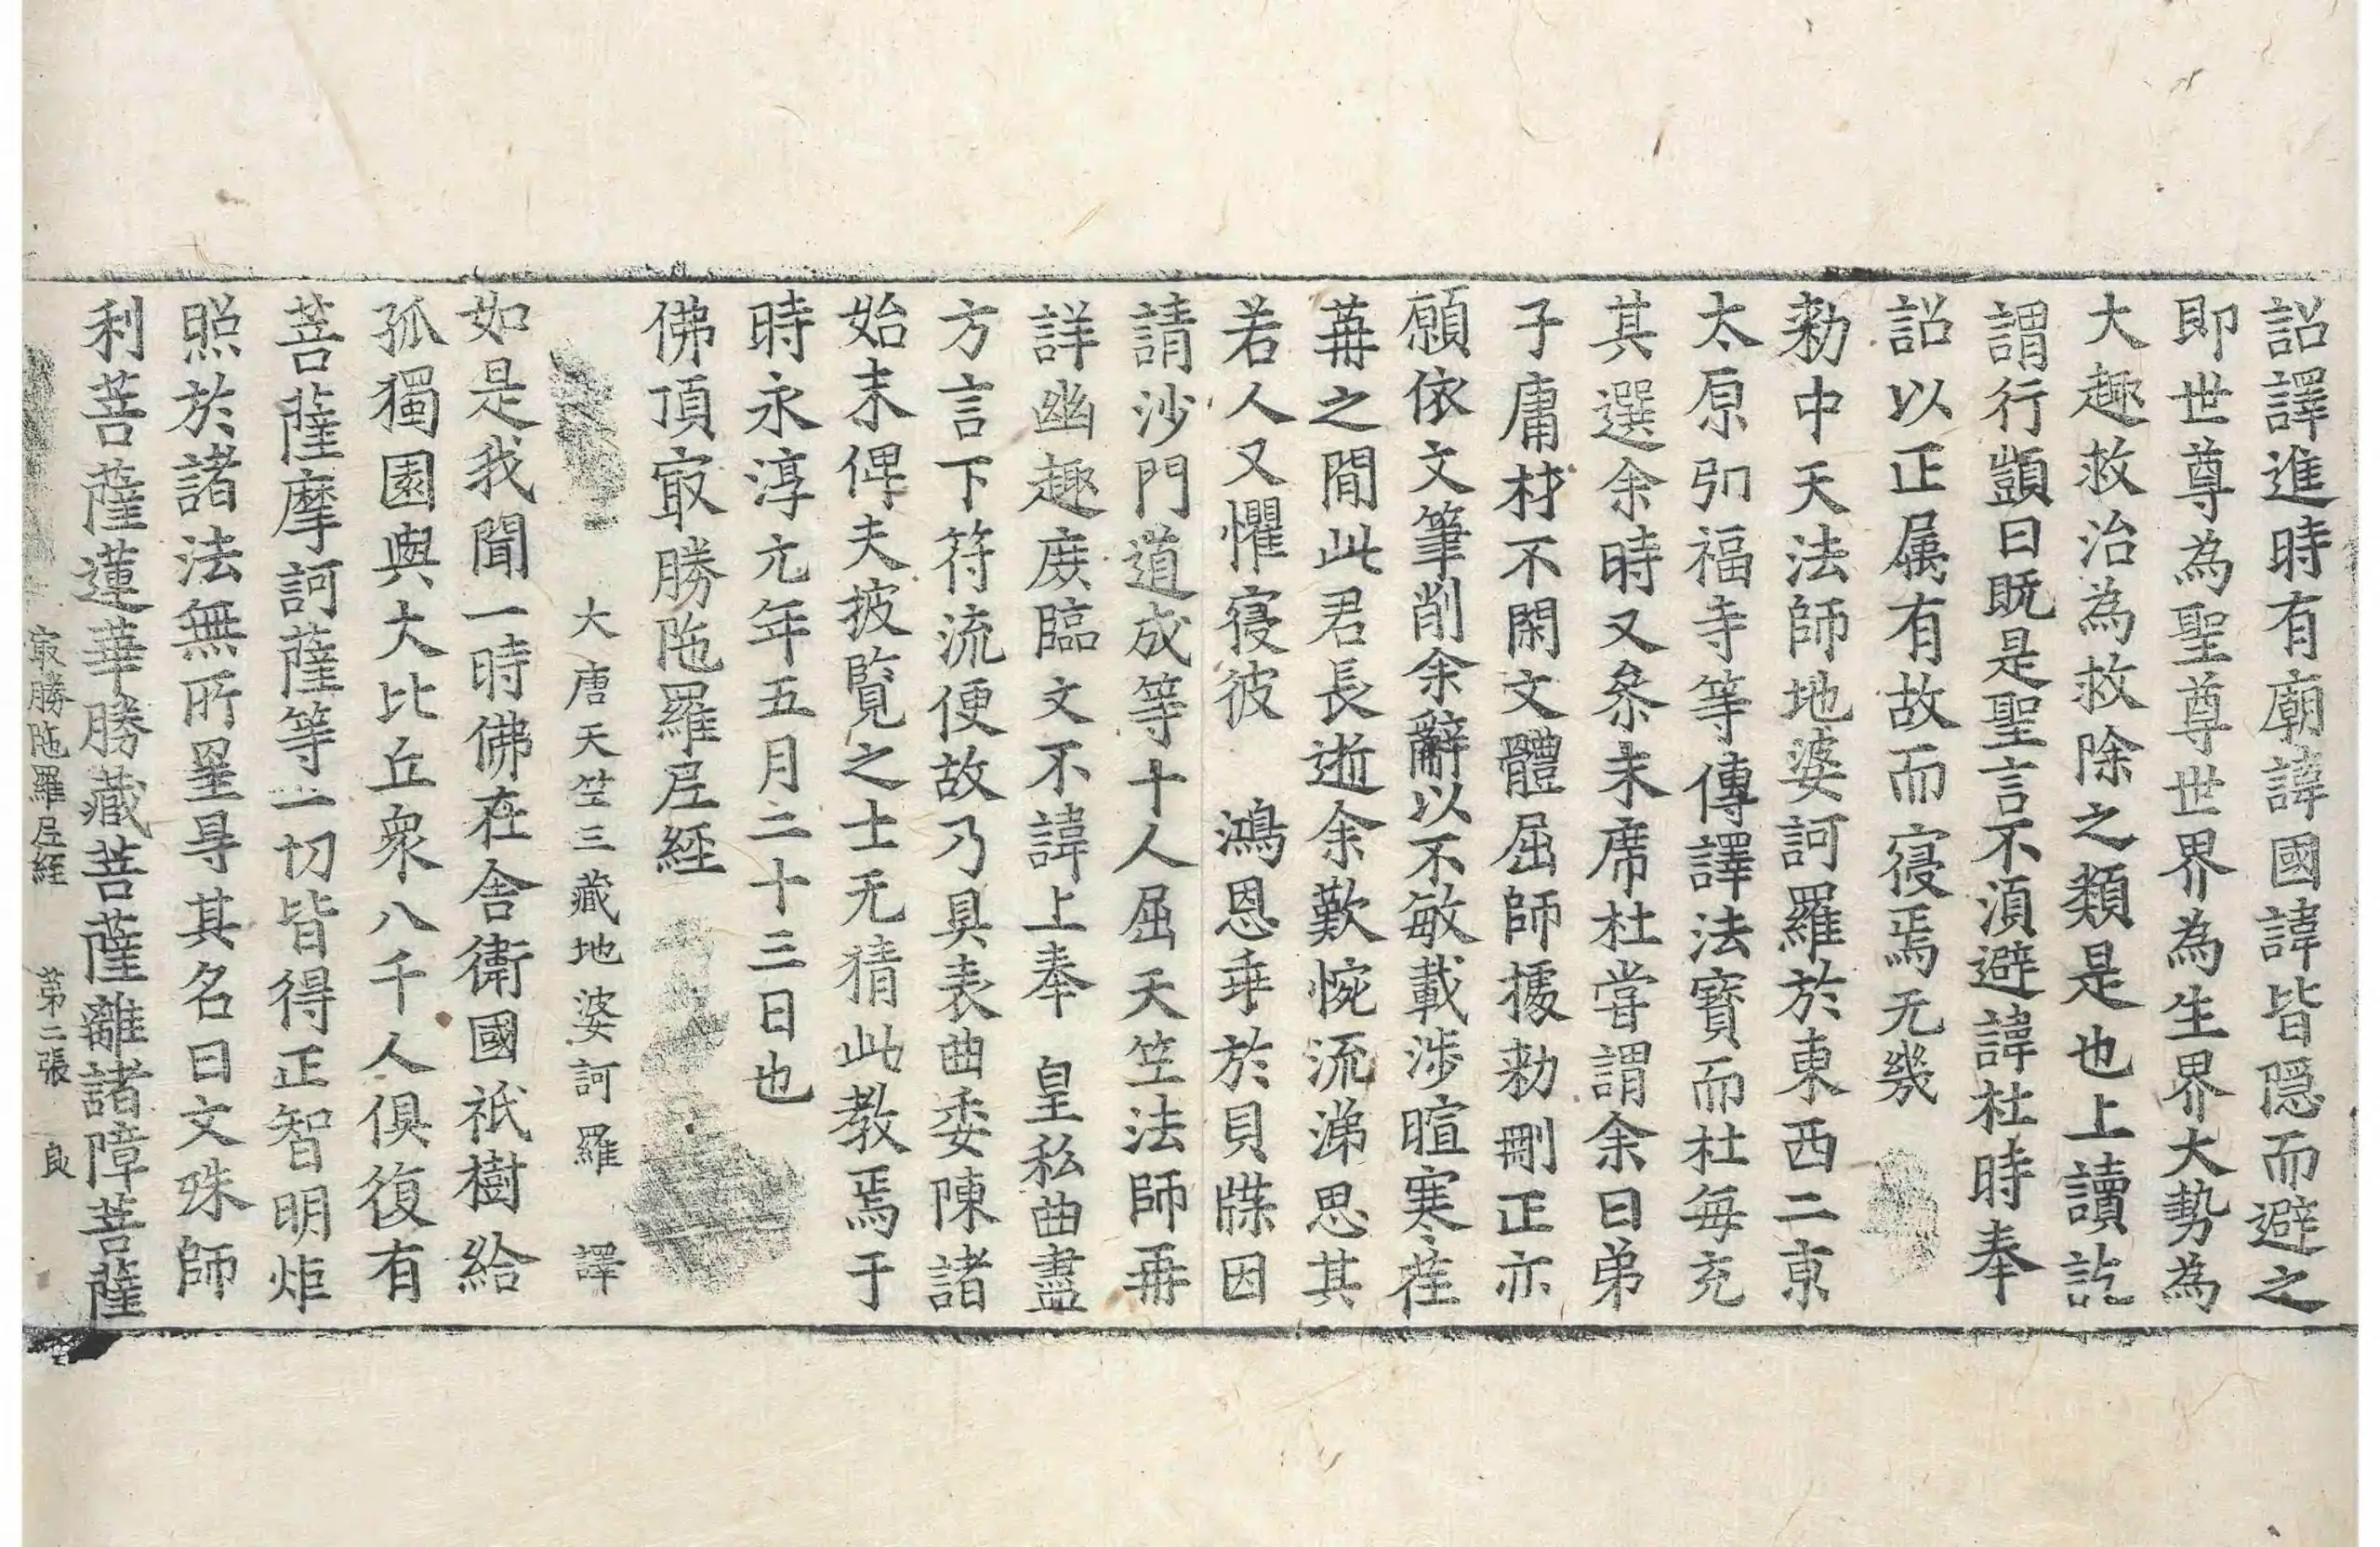 詔譯進時有廟諱國諱皆隱而避之
即世尊為聖尊世界為生界大勢為
大趣救治為救除之類是也上讀訖
謂行顗曰既是聖言不湏避諱杜時奉
詔以正属有故而寑焉无幾
勑中天法師地婆訶羅於東西二京
太原弘福寺等傳譯法寶而杜每充
其選余時又叅末席杜甞謂余曰弟
子庸材不閑文體屈師據勑刪正亦
願依文筆削余辭以不敏載涉暄寒荏
苒之間此君長逝余歎惋流涕思其
若人又懼寑彼　鴻恩垂於貝牒因
請沙門道成等十人屈天竺法師再
詳幽趣庻臨文不諱上奉　皇私曲盡
方言下符流便故乃具表曲委陳諸
始末俾夫披覧之士无猜此教焉于
時永淳元年五月二十三日也
佛頂冣勝陁羅尼經
大唐天竺三藏地婆訶羅　譯
如是我聞一時佛在舍衛國祇樹給
孤獨園與大比丘衆八千人俱復有
菩薩摩訶薩等一切皆得正智明炬
照於諸法無所罣㝵其名曰文殊師
利菩薩蓮華勝藏菩薩離諸障菩薩
冣勝陁羅尼經　第二張　良